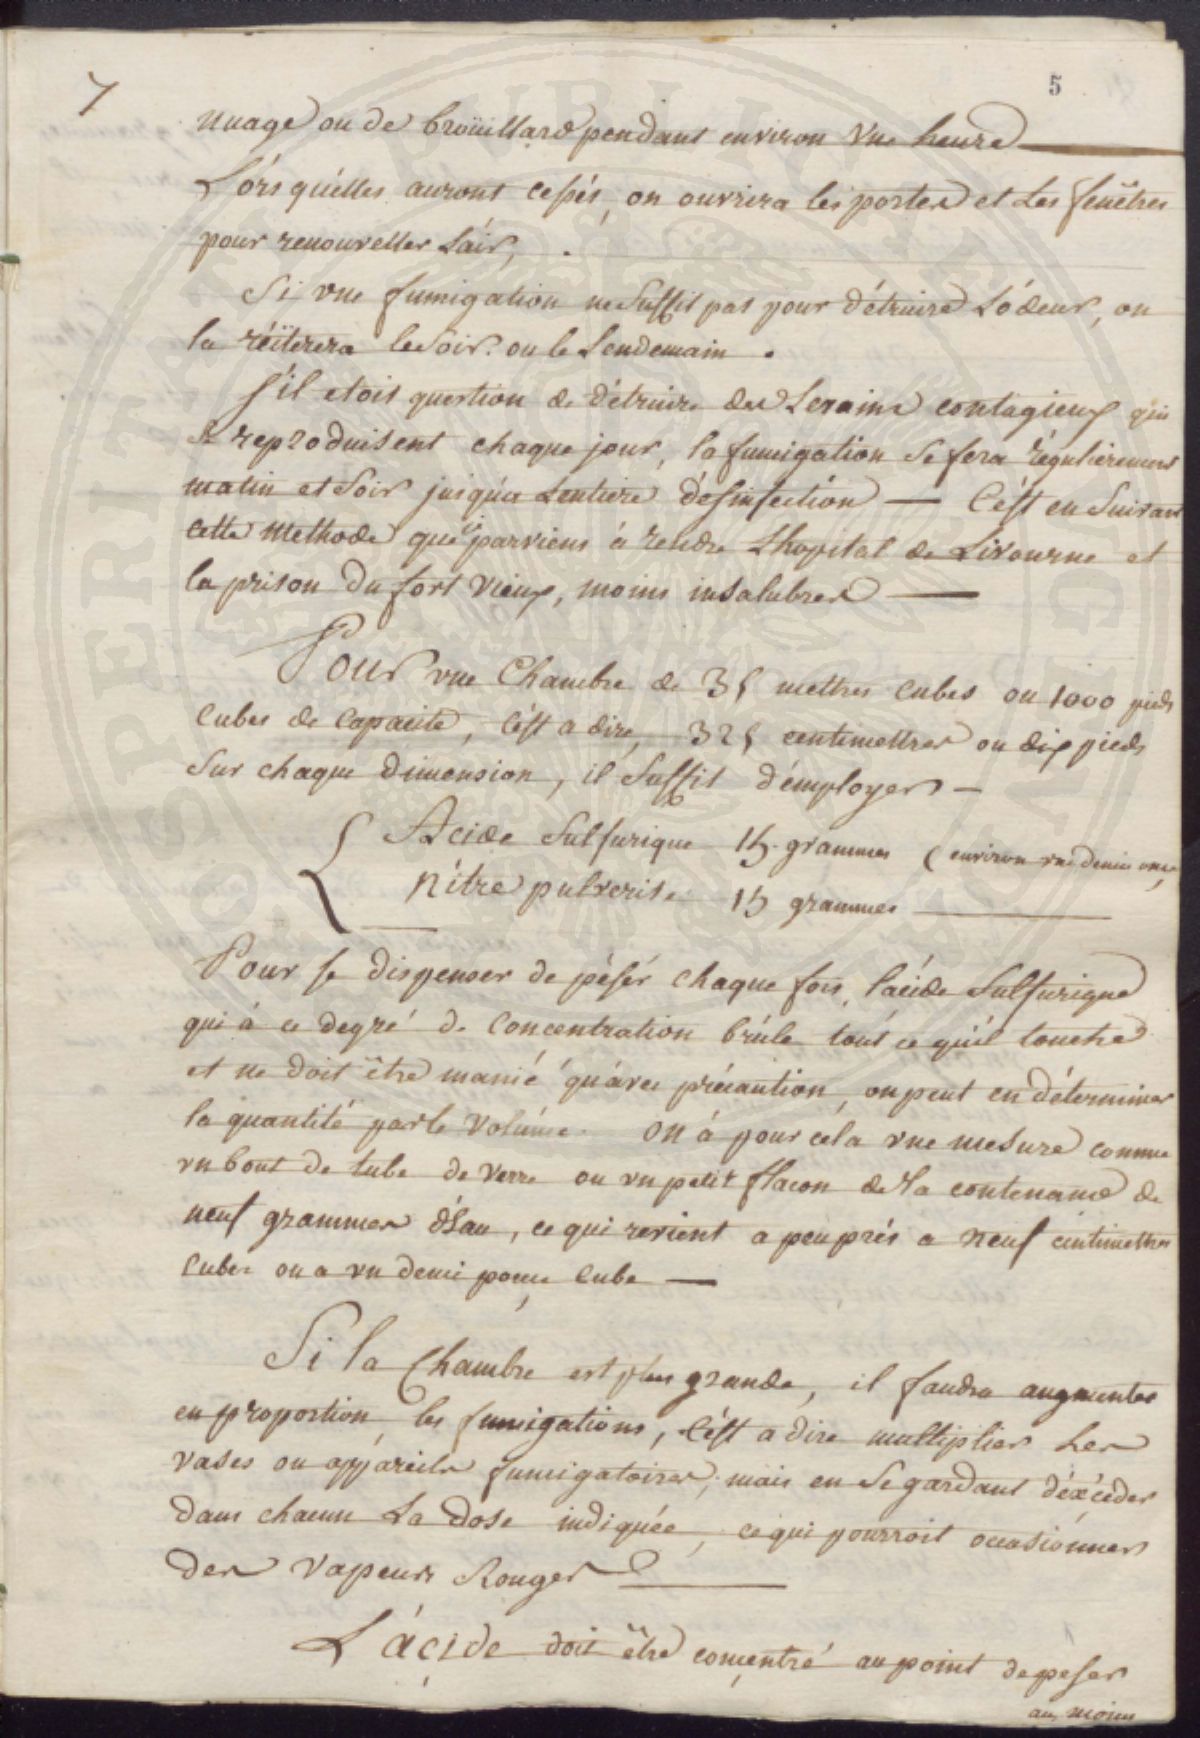 7
5
nuage ou de broüillard pendant environ vne heure
Lórs qu'elles auront cessés, on ouvrira les portes et Les fenêtres
pour renouveller L'air,
Si vne fumigation ne Suffit pas pour détruire Lódeur, on
la réïterera le Soir. ou le Lendemain.
S'il etoit question de détruire des Levains contagieux qui
se reproduisent chaque jour, la fumigation Se fera régulierement
matin et Soir jusqu'a Lentiere désinfection — C'est en Suivant
cette Methode que je parviens á rendre Lhopital de Livourne et
la prison du fort vieux, moins insalubres —
Pour vne Chambre de 35 mettres cubes ou 1000 pieds
Cubes de Capacité, C'est a dire, 325 centimettres ou dix pieds
Sur chaque dimension, il Suffit d'émployer —
Acide Sulfurique 15 grammes (environ vne demie once,
nître pulverisé 15 grammes
Pour se dispenser de pésér chaque fois, l'acide Sulfurique
qui à ce degré de Concentration brûle tout ce qu'il touche
et ne doit être manié qu'avec précaution, on peut en déterminer
la quantité par le Volúme. on á pour céla vne mesure comme
vn bout de tube de verre ou vn petit flacon de la contenance de
neuf grammes d'Eau, ce qui revient a peu prés a neuf centimettres
Cubes ou a vn demi pouce Cube —
Si la Chambre est plus grande, il faudra augmenter
en proportion, les fumigations, C'est a dire multiplier Les
vases ou appareils fumigatoires, mais en Se gardant déxcéder
dans chacun La dose indiquée, ce qui pourroit occasionner
des Vapeurs Rouges
L'ácide doit être concentré au point de peser
au moins